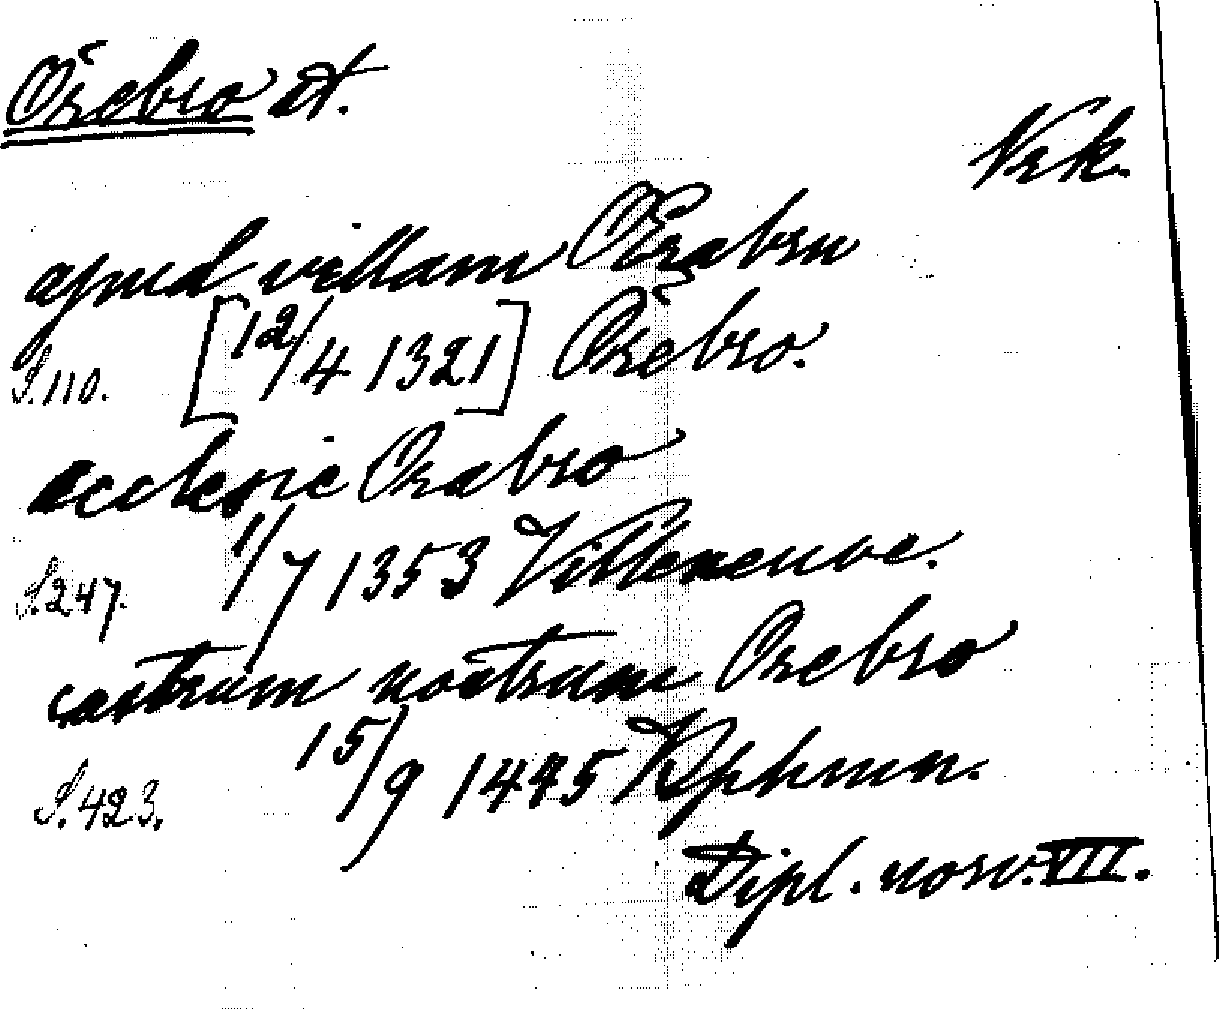 Örebro st.
Nrk.
apud villam Ørabru
S. 110. [12/4 1321] Örebro.
ecclesie Orabro
S. 247. 1/7 1353 Villeneuve.
castrum nostrum Orebro
S. 423. 15/9 1445 Kphmn.
Dipl. norv. VII.